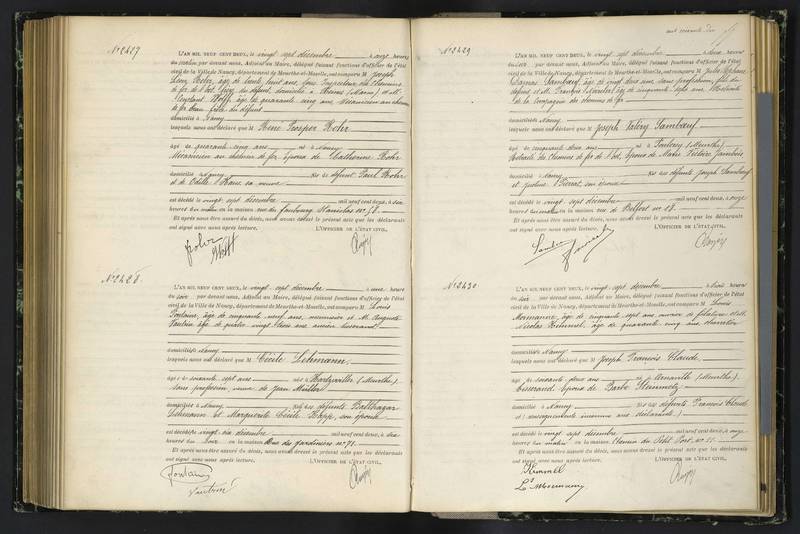 N° 2427
L'AN MIL NEUF CENT DEUX, le vingt sept décembre à onze heures
du matin par devant nous, Adjoint au Maire, délégué faisant fonctions d'officier de l'état
civil de la Ville de Nancy, département de Meurthe-et-Moselle, ont comparu M Joseph
Léon Rohr, âgé de trente huit ans, sous Inspecteur des chemins
de fer de l'Est, frère du défunt, domicilié à Reims (Marne) et M.
Hoff, âgé de quarante cinq ans, Mécanicien au chemin
de fer beau frère du défunt
domicilié à Nancy
lesquels nous ont déclaré que M René Prosper Rohr
âgé de quarante cinq ans né à Nancy
Mécanicien au chemin de fer époux de Catherine Rohr
domicilié à Nancy fils de défunt Paul Rohr
et de Odile Hans sa veuve
est décédé le vingt sept décembre mil neuf cent deux, à six
heures du matin en la maison rue du faubourg Stanislas n° 58
Et après nous être assuré du décès, nous avons dressé le présent acte que les déclarants
ont signé avec nous après lecture. L'OFFICIER DE L'ÉTAT CIVIL,
Rohr
Hoff
N° 2428
L'AN MIL NEUF CENT DEUX, le vingt sept décembre à une heure
du soir par devant nous, Adjoint au Maire, délégué faisant fonctions d'officier de l'état
civil de la Ville de Nancy, département de Meurthe-et-Moselle, ont comparu M Louis
Fontaine, âgé de cinquante neuf ans, menuisier et M. Auguste
Vautrin âgé de quatre vingt trois ans ancien tisserand
domiciliés Nancy
lesquels nous ont déclaré que M Cécile Lehmann
âgée soixante sept ans née à Hartzviller (Meurthe)
sans profession veuve de Jean Muller
domiciliée à Nancy fille des défunts Balthazar
Lehmann et Marguerite Cécile Happ, son épouse
est décédée vingt six décembre mil neuf cent deux, à six
heures du soir en la maison Rue des Jardiniers n° 71
Et après nous être assuré du décès, nous avons dressé le présent acte que les déclarants
ont signé avec nous après lecture. L'OFFICIER DE L'ÉTAT CIVIL,
Fontaine
Vautrin
N° 2429
L'AN MIL NEUF CENT DEUX, le vingt sept décembre à deux heures
du soir par devant nous, Adjoint au Maire, délégué faisant fonctions d'officier de l'état
civil de la Ville de Nancy, département de Meurthe-et-Moselle, ont comparu M Jules Stéphane
Lambœuf, âgé de vingt deux ans, sans profession, fils du
défunt et M. François âgé de cinquante sept ans, Retraité
de la compagnie des chemins de fer
domiciliés Nancy
lesquels nous ont déclaré que M Joseph Valéry Lambœuf
âgé de cinquante deux ans né à Foulcrey (Meurthe)
Retraité des Chemins de fer de l'Est, époux de Marie Victoire Jambois
domicilié à Nancy fils des défunts Joseph Lambœuf
et Justine Pierrat, son épouse
est décédé le vingt sept décembre mil neuf cent deux, à onze
heures du matin en la maison rue de Belfort n° 18
Et après nous être assuré du décès, nous avons dressé le présent acte que les déclarants
ont signé avec nous après lecture. L'OFFICIER DE L'ÉTAT CIVIL,
N° 2430
L'AN MIL NEUF CENT DEUX, le vingt sept décembre à trois heures
du soir par devant nous, Adjoint au Maire, délégué faisant fonctions d'officier de l'état
civil de la Ville de Nancy, département de Meurthe-et-Moselle, ont comparu M Louis
Mormanne, âgé de cinquante sept ans ouvrier de filature et M.
Nicolas Kimmel, âgé de quarante cinq ans charretier
domiciliés Nancy
lesquels nous ont déclaré que M Joseph François Claude
âgé de soixante deux ans né à Arnaville (Meurthe)
Tisserand époux de Barbe Steinmetz
domicilié à Nancy fils des défunts François Claude
et (renseignements inconnus aux déclarants)
est décédé le vingt sept décembre mil neuf cent deux, à onze
heures du matin en la maison Chemin du Petit Port n° 25
Et après nous être assuré du décès, nous avons dressé le présent acte que les déclarants
ont signé avec nous après lecture. L'OFFICIER DE L'ÉTAT CIVIL,
Kimmel
L. Mormanne